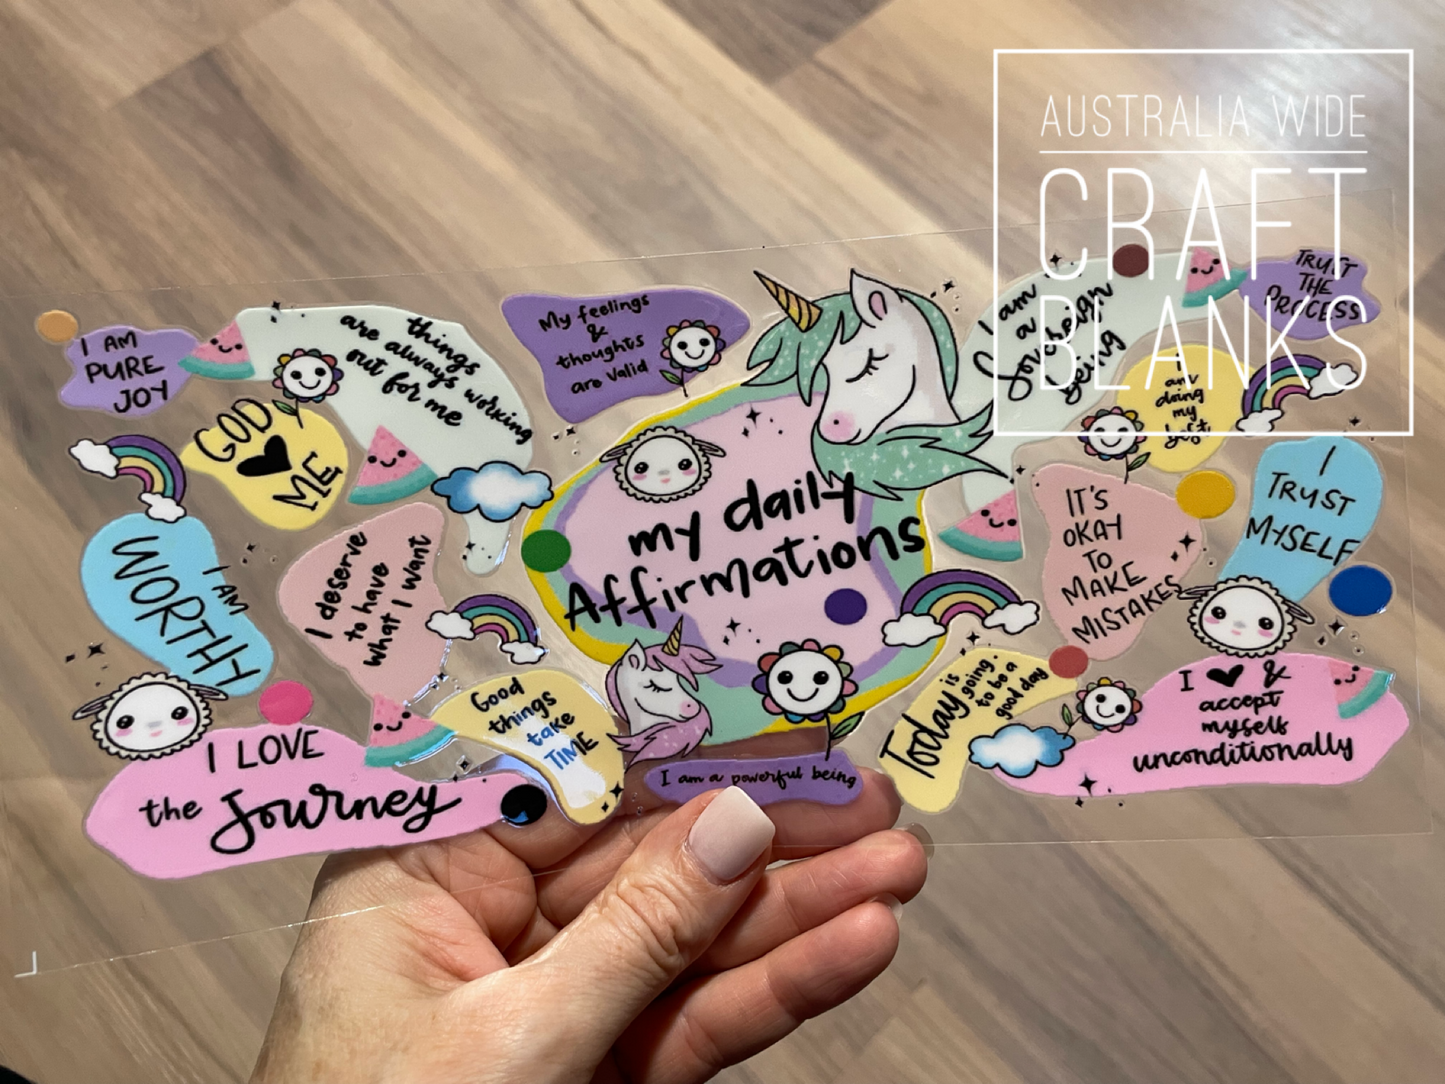 AUSTRALIA WIDE
CRAFT
BLANKS
I AM
PURE
JOY
things
are always working
out for me
My feelings
&
thoughts
are valid
I am
a
Sovereign
being
TRUST
THE
PROCESS
GOD
ME
I am
doing
my
best
I
TRUST
MYSELF
my daily
Affirmations
IT'S
OKAY
TO
MAKE
MISTAKES
I AM
WORTHY
I deserve
to have
what I want
Good
things
take
TIME
Today is
going
to be a
good day
I &
accept
myself
unconditionally
I LOVE
the Journey
I am a powerful being